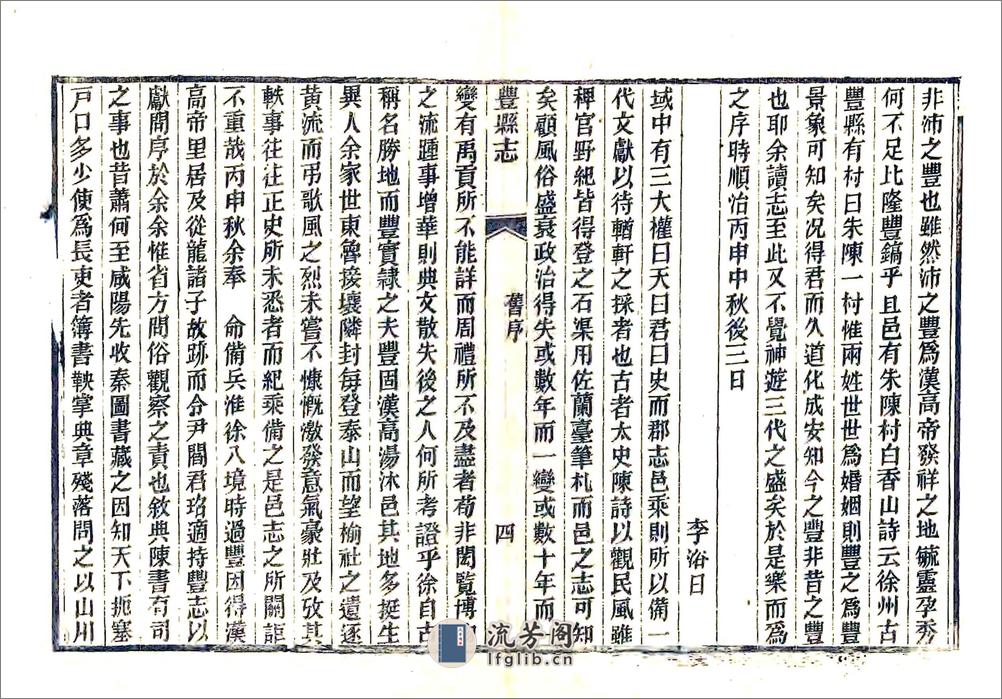 非沛之豐也雖然沛之豐爲漢高帝發祥之地毓靈孕秀
何不足比隆豐鎬乎且邑有朱陳村白香山詩云徐州古
豐縣有村曰朱陳一村惟兩姓世世爲婚姻則豐之爲豐
景象可知矣况得君而久道化成安知今之豐非昔之豐
也耶余讀志至此又不覺神遊三代之盛矣於是樂而爲
之序時順治丙申中秋後三日
李浴日
域中有三大權曰天曰君曰史而郡志邑乘則所以備一
代文獻以待輶軒之採者也古者太史陳詩以觀民風雖
稗官野紀皆得登之石渠用佐蘭臺筆札而邑之志可知
矣顧風俗盛衰政治得失或數年而一變或數十年而
豐縣志
舊序
四
變有禹貢所不能詳而周禮所不及盡者苟非閎覽博
之流踵事增華則典文散失後之人何所考證乎徐自古
稱名勝地而豐實隷之夫豐固漢高湯沐邑其地多挺生
異人余家世東魯接壤隣封每登泰山而望榆社之遺逐
黃流而弔歌風之烈未嘗不慷慨激發意氣豪壯及攷其
軼事往往正史所未悉者而紀乘備之是邑志之所關詎
不重哉丙申秋余奉 命備兵淮徐八境時過豐因得漢
高帝里居及從龍諸子故跡而令尹閻君珆適持豐志以
獻問序於余余惟省方問俗觀察之責也敘典陳書有司
之事也昔蕭何至咸陽先收秦圖書藏之因知天下扼塞
戸口多少使爲長吏者簿書鞅掌典章殘落問之以山川
流芳阁
lfglib.cn